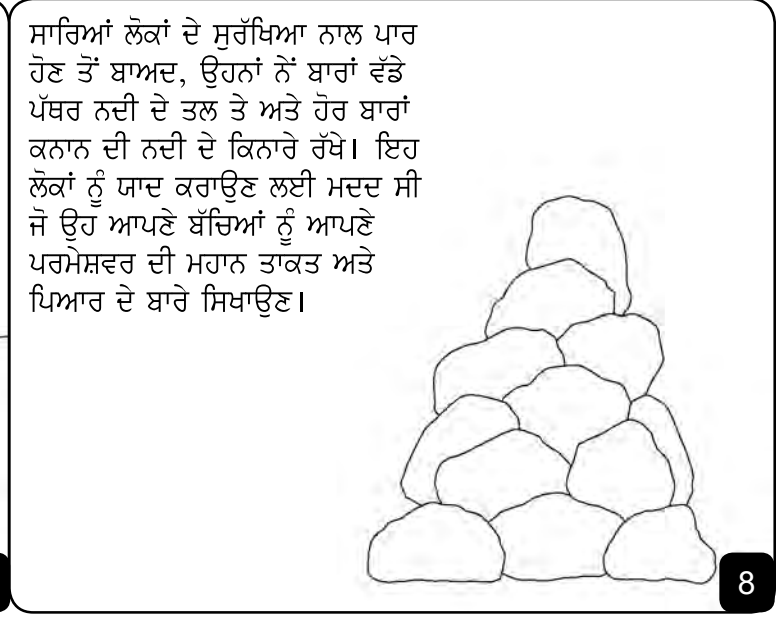 ਸਾਰਿਆਂ ਲੋਕਾਂ ਦੇ ਸੁਰੱਖਿਆ ਨਾਲ ਪਾਰ
ਹੋਣ ਤੋਂ ਬਾਅਦ, ਉਹਨਾਂ ਨੇਂ ਬਾਰਾਂ ਵੱਡੇ
ਪੱਥਰ ਨਦੀ ਦੇ ਤਲ ਤੇ ਅਤੇ ਹੋਰ ਬਾਰਾਂ
ਕਨਾਨ ਦੀ ਨਦੀ ਦੇ ਕਿਨਾਰੇ ਰੱਖੇ। ਇਹ
ਲੋਕਾਂ ਨੂੰ ਯਾਦ ਕਰਾਉਣ ਲਈ ਮਦਦ ਸੀ
ਜੋ ਉਹ ਆਪਣੇ ਬੱਚਿਆਂ ਨੂੰ ਆਪਣੇ
ਪਰਮੇਸ਼ਵਰ ਦੀ ਮਹਾਨ ਤਾਕਤ ਅਤੇ
ਪਿਆਰ ਦੇ ਬਾਰੇ ਸਿਖਾਉਣ।
8